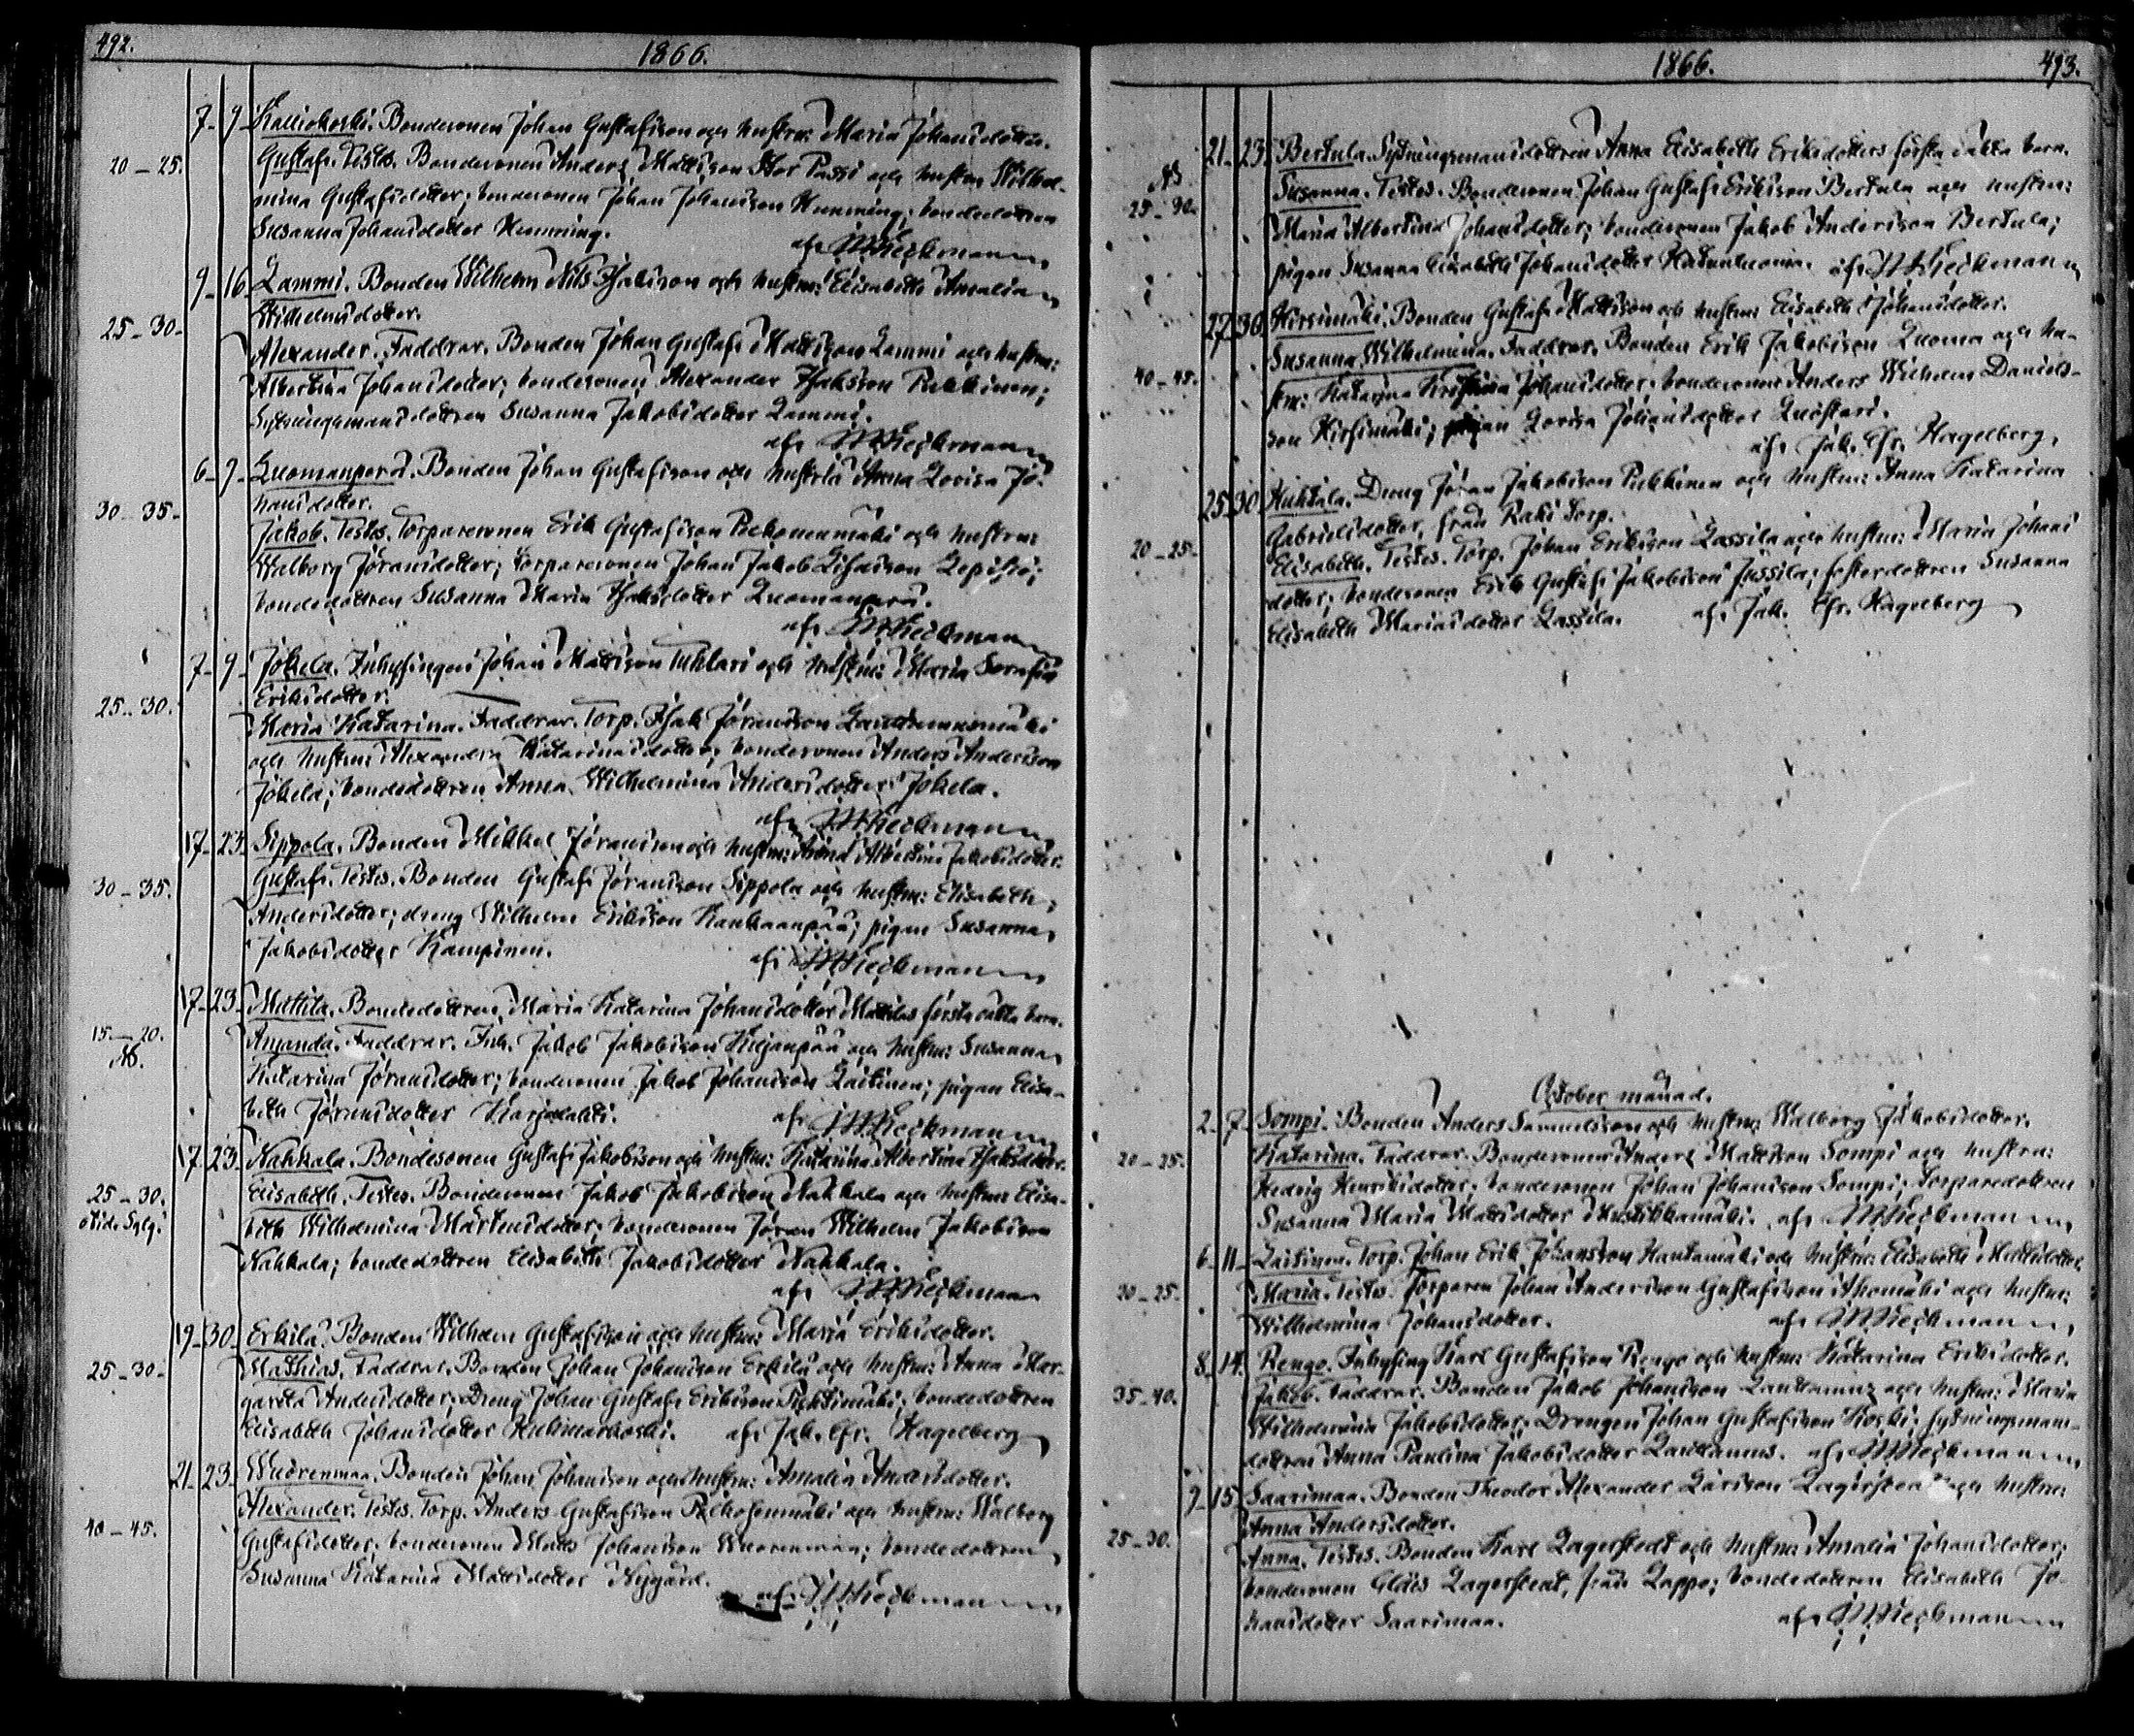 492.
1866.
7 - 9 Kalliokoski. Bondesonen Johan Gustafsson och hustru: Maria Johansdotter.
20 - 25. Gustaf. Testes. Bondesonen Anders Mattsson Stor Passi och hustru Wilhel-
mina Gustafsdotter; bondesonen Johan Johansson Humming; bondedottren
Susanna Johansdotter Humming.
af M Heikman
9 - 16 Lammi. Bonden Wilhelm Nils Isaksson och hustru: Elisabeth Amalia
Wilhelmsdotter.
25 - 30 -
Alexander. Faddrar. Bonden Johan Gustaf Mattsson Lammi och hustru:
Albertina Johansdotter; bondesonen Alexander Isaksson Pukkinen;
Sytningsmansdottren Susanna Jakobsdotter Lammi.
af M Heikman
6 - 7 - Luomanperä. Bonden Johan Gustafsson och hustru Anna Lovisa Jo-
hansdotter.
30 - 35 -
Jakob. Testes. Torparesonen Erik Gustafsson Pelkonenmäki och hustru:
Walborg Jöransdotter; torparesonen Johan Jakob Lepistö;
bondedottren Susanna Maria Isaksdotter Luomanperä.
af M Heikman
7 - 9 - Jokela. Inhysingen Johan Mattsson Tuhlari och hustru: Maria Serafia
Eriksdotter.
25 - 30.
Maria Katarina. Faddrar. Torp. Isak Jöransson
och hustru: Alexandra Katarinasdotter; bondesonen Anders Andersson
Jokela; bondedottren Anna Wilhelmina Andersdotter Jokela.
af M Heikman
17 - 23 - Sippola. Bonden Mikkel Jöransson och hustru: Anna Albertina Jakobsdotter.
30 - 35. Gustaf. Testes. Bonden Gustaf Jöransson Sippola och hustru: Elisabeth
Andersdotter; dreng Wilhelm Eriksson Kankaanpää; pigan Susanna
Jakobsdotter Kampinen.
af M Heikman
17 - 23. Mattila. Bondedottren Maria Katarina Johansdotter Mattilas första oäkta barn.
15 - 20. Amanda. Faddrar. Inh. Jakob Jakobsson och hustru: Susanna
Katarina Jöransdotter; bondesonen Jakob Johansson Laitinen; pigan Elisa-
beth Jöransdotter Karjalahti.
af M Heikman
17 - 23. Nahkala. Bondesonen Gustaf Jakobsson och hustru: Katarina Albertina Isaksdotter.
25 - 30. Elisabeth. Testes. Bondesonen Jakob Jakobsson Nahkala och hustru Elisa-
beth Wilhelmina Mårtensdotter; bondesonen Jöran Wilhelm Jakobsson
Nahkala; bondedottren Elisabeth Jakobsdotter Nahkala.
af M Heikman
19 - 30 Erkilä. Bonden Wilhelm Gustafsson och hustru: Maria Eriksdotter.
25 - 30 - Matthias. Faddrar. Bonden Johan Johansson Erkilä och hustru: Anna Mar-
gareta Andersdotter; Dreng Johan Gustaf Eriksson; bondedottren
Elisabeth Johansdotter Huhmarkoski. af Jak. Efr. Hagelberg
21 - 23. Wuorenmaa. Bonden Johan Johansson och hustru: Amalia Andersdotter.
Alexander. Testes. Torp. Anders Gustafsson och hustru: Walborg
40 - 45. Gustafsdotter; bondesonen Matts Johansson Wuorenmaa; bondedottren
Susanna Katarina Mattsdotter Nygård.
af M Heikman
1866.
493.
21 - 23. Bertula. Sytningsmansdottren Anna Elisabeth Eriksdotters första oäkta barn.
25 - 30. Susanna. Testes. Bondesonen Johan Gustaf Eriksson Bertula och hustru:
Maria Albertina Johansdotter; bondesonen Jakob Andersson Bertula;
pigan Susanna Elisabeth Johansdotter. af M Heikman
27 - 30. Hirsimäki. Bonden Gustaf Mattsson och hustru Elisabeth Johansdotter.
Susanna Wilhelmina. Faddrar. Bonden Erik Jakobsson Luoma och hu-
40 - 45. stru: Katarina Kristina Johansdotter; bondesonen Anders Wilhelm Daniels-
son Hirsimäki; pigan Lovisa Johansdotter Luostari.
af Jak. Efr. Hagelberg.
25 30 Huhtala. Dreng Jöran Jakobsson Pukkinen och hustru: Anna Katarina
Gabrielsdotter, från Raki torp.
20 - 25. Elisabeth. Testes. Torp. Johan Eriksson Lassila och hustru: Maria Johans
dotter; bondesonen Erik Gustaf Jakobsson Jussila; fosterdottren Susanna
Elisabeth Mariasdotter Lassila. af Jak. Efr. Hagelberg
October månad.
2 - 7. Sompi. Bonden Anders Samuelsson och hustru: Walborg Jakobsdotter.
20 - 25. Katarina. Faddrar. Bondesonen Anders Mattsson Sompi och hustru:
Hedvig Henriksdotter; bondesonen Johan Johansson Sompi; Torparedottren
Susanna Maria Mattsdotter Mustikkamäki. af M Heikman
6 - 11 - Laitinen. Torp. Johan Erik Johansson Hautamäki och hustru: Elisabeth Mattsdotter.
20 - 25. Maria. Testes. Torparen Johan Andersson Gustafsson Ahomäki och hustru:
Wilhelmina Johansdotter. af M Heikman
8. 14. Rengo. Inhysing Karl Gustafsson Rengo och hustru: Katarina Eriksdotter.
35 - 40. Jakob. Faddrar. Bonden Jakob Johansson Lanttamus och hustru: Maria
Wilhelmina Jakobsdotter; Drengen Johan Gustafsson Koski; sytningsmans-
dottren Anna Paulina Jakobsdotter. af M Heikman
9 - 15. Saarimaa. Bonden Theodor Alexander Larsson Lagerstedt och hustru:
Anna Andersdotter.
25 - 30. Anna. Testes. Bonden Karl Lagerstedt och hustru Amalia Johansdotter;
bondesonen Claës Lagerstedt, från Lappo; bondedottren Elisabeth Jo-
hansdotter Saarimaa. af M Heikman